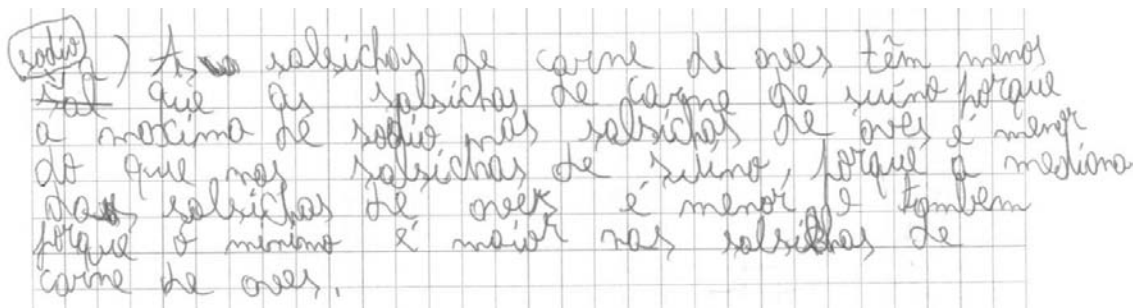 sodio) As salsichas de carne de aves têm menos
sal que as salsichas de carne de suino porque
a maxima de sodio nas salsichas de aves é menor
do que nas salsichas de suino, porque a mediana
das salsichas de aves é menor e tambem
porque o minimo é maior nas salsichas de
carne de aves.